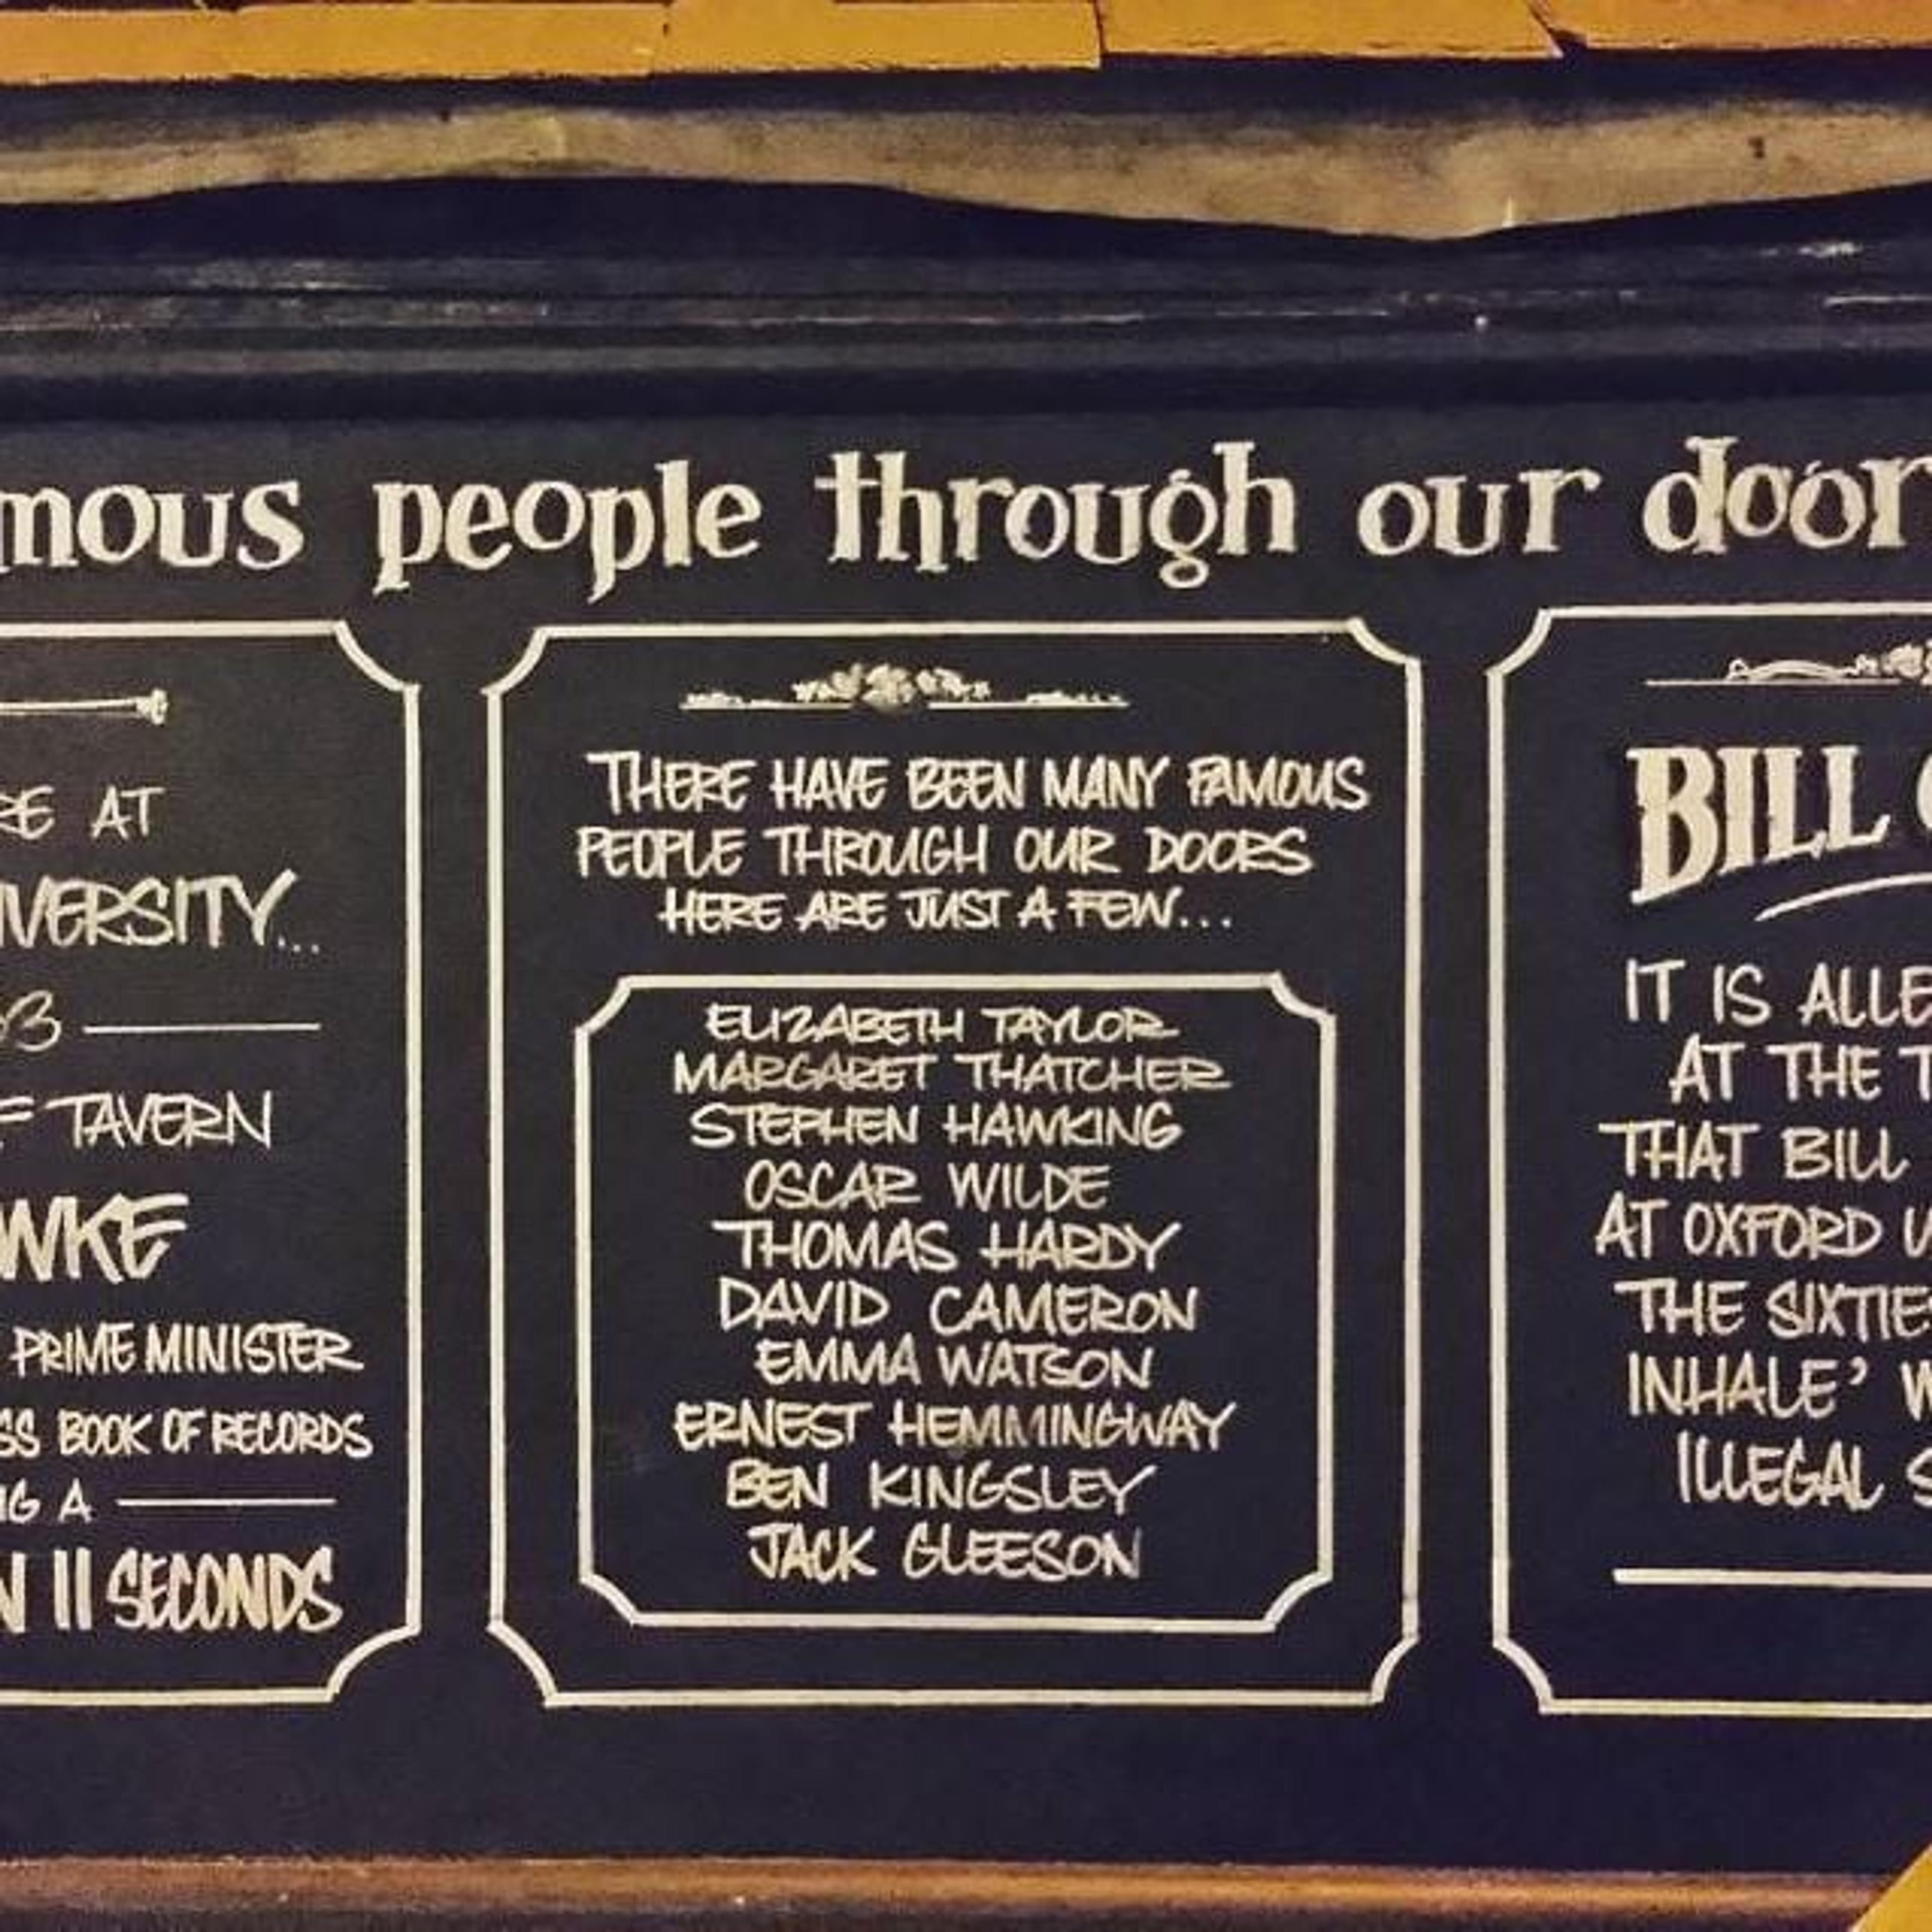 mous people through our door
RE AT
IVERSITY...
TAVERN
WKE
PRIME MINISTER
SS BOOK OF RECORDS
NG A
N 11 SECONDS
THERE HAVE BEEN MANY FAMOUS
PEOPLE THROUGH OUR DOORS
HERE ARE JUST A FEW...
ELIZABETH TAYLOR
MARGARET THATCHER
STEPHEN HAWKING
OSCAR WILDE
THOMAS HARDY
DAVID CAMERON
EMMA WATSON
ERNEST HEMMINGWAY
BEN KINGSLEY
JACK GLEESON
BILL
IT IS ALLE
AT THE T
THAT BILL
AT OXFORD U
THE SIXTIES
INHALE' W
ILLEGAL S